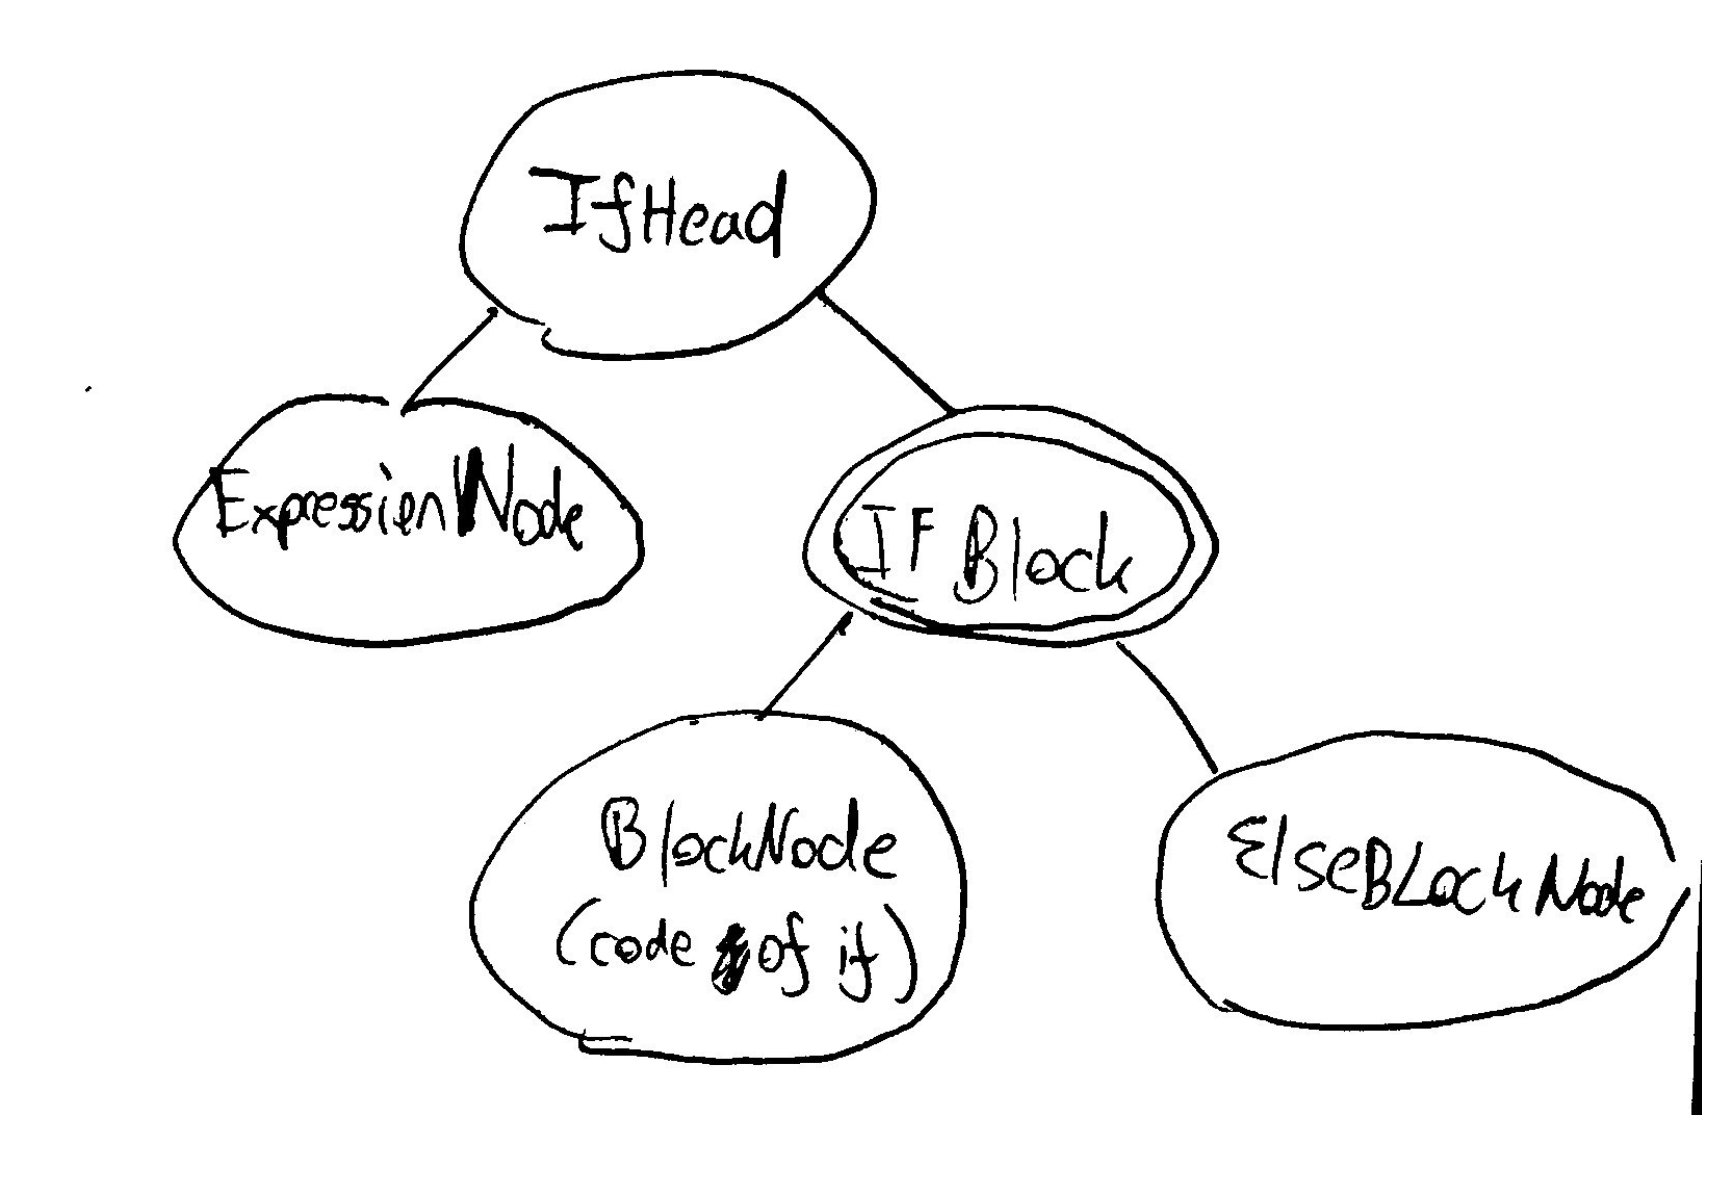 IfHead
ExpressionNode
IF Block
BlockNode
(code of if)
ElseBLockNode